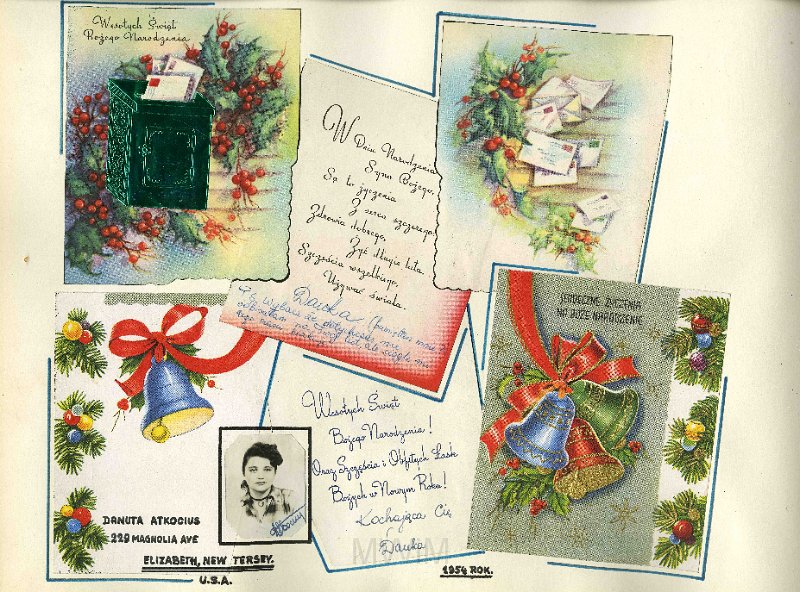 Wesołych Świąt
Bożego Narodzenia
W Dniu Narodzenia
Syna Bożego,
Są to życzenia
Z serca szczerego:
Zdrowia dobrego,
Żyć długie lata,
Szczęścia wszelkiego,
Używać świata.
Danka
SERDECZNE ŻYCZENIA
NA BOŻE NARODZENIE
Wesołych Świąt
Bożego Narodzenia!
Oraz Szczęścia i Obfitych Łask
Bożych w Nowym Roku!
Kochająca Cię
Danka
DANUTA ATKOCIUS
229 MAGNOLIA AVE
ELIZABETH, NEW TERSEY.
U.S.A.
1954 ROK.
MWM